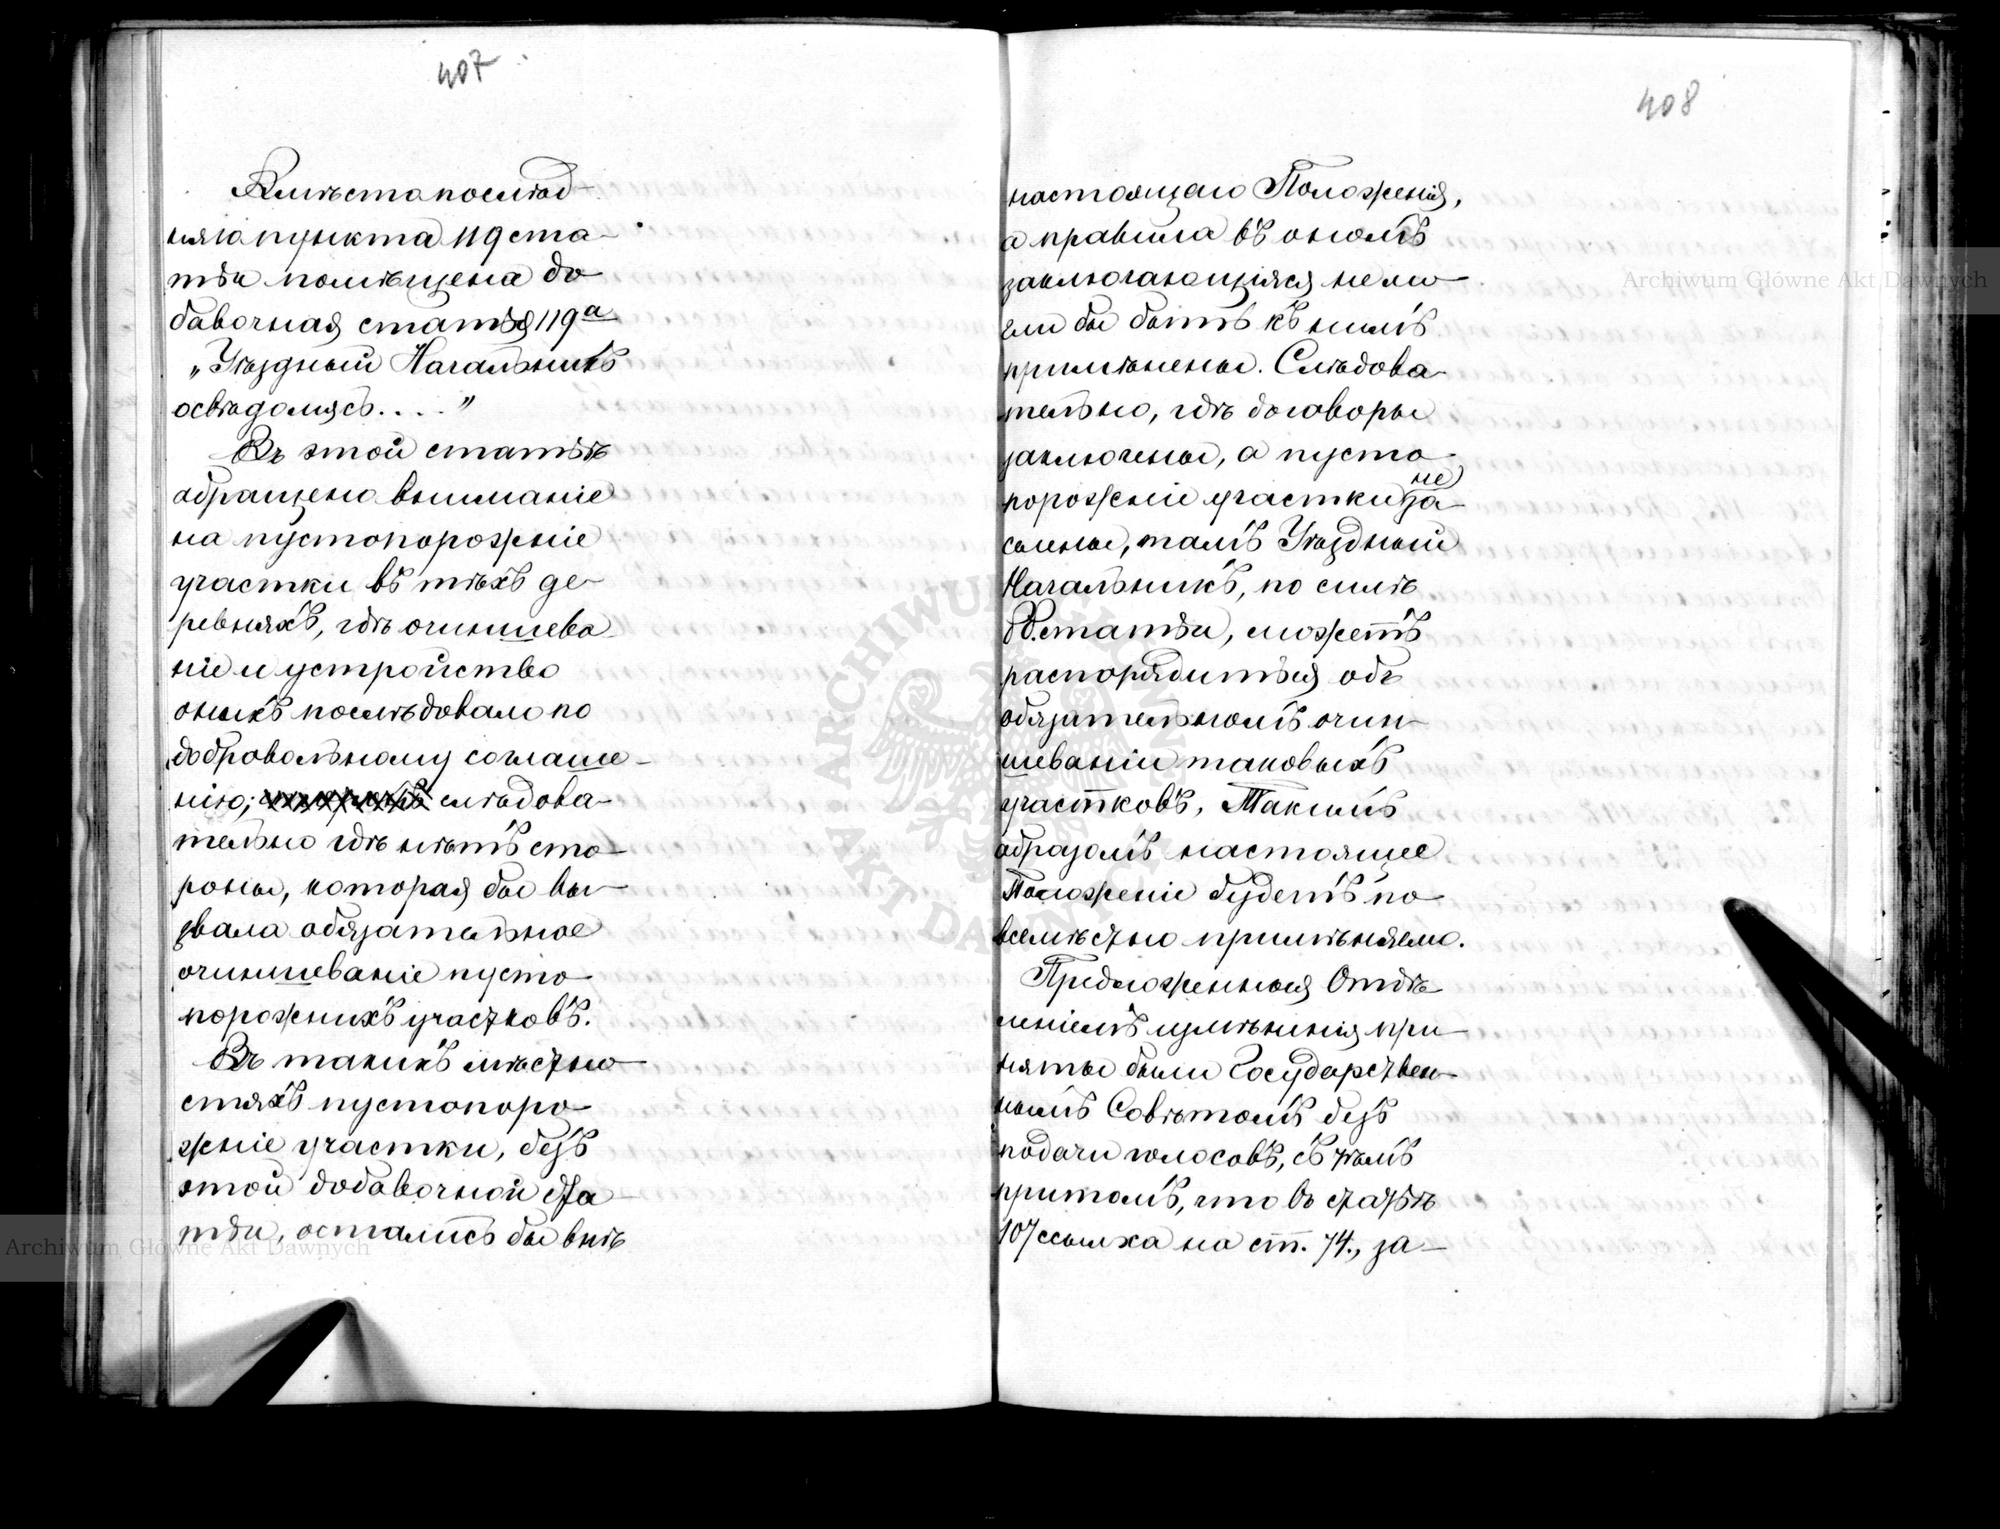 407
Вмѣсто послѣд-
няго пункта 119 ста-
тьи помѣщена до
бавочная статья 119а
„Уѣздный Начальникъ
освѣдомясь...."
Въ этой статьѣ
обращено вниманіе
на пустопорожніе
участки въ тѣхъ де-
ревняхъ, гдѣ очиншева-
ніе и устройство
оныхъ послѣдовало по
добровольному соглаше-
нію; слѣдова-
тельно гдѣ нѣтъ сто-
роны, которая бы вы-
звала обязательное
очиншеваніе пусто-
порожнихъ участковъ.
Въ такихъ мѣстно-
стяхъ пустопоро-
жніе участки, безъ
этой добавочной ста-
тьи, остались бы внѣ
408
настоящаго Положенія,
а правила въ ономъ
заключающіяся не мо-
гли бы быть къ нимъ
примѣнены. Слѣдова-
тельно, гдѣ договоры
заключены, а пусто-
порожніе участки не за-
селены, тамъ Уѣздный
Начальникъ, по силѣ
статьи, можетъ
распорядиться объ
обязательномъ очин-
шеваніи таковыхъ
участковъ, Такимъ
образомъ настоящее
Положеніе будетъ по-
всемѣстно примѣняемо.
Предложенныя Отдѣ-
леніемъ измѣненія при-
няты были Государствен-
нымъ Совѣтомъ безъ
подачи голосовъ, съ тѣмъ
притомъ, что въ статьѣ
107 ссылка на ст. 74., за-
Archiwum Główne Akt Dawnych
Archiwum Główne Akt Dawnych
ARCHIWUM GŁÓWNE AKT DAWNYCH